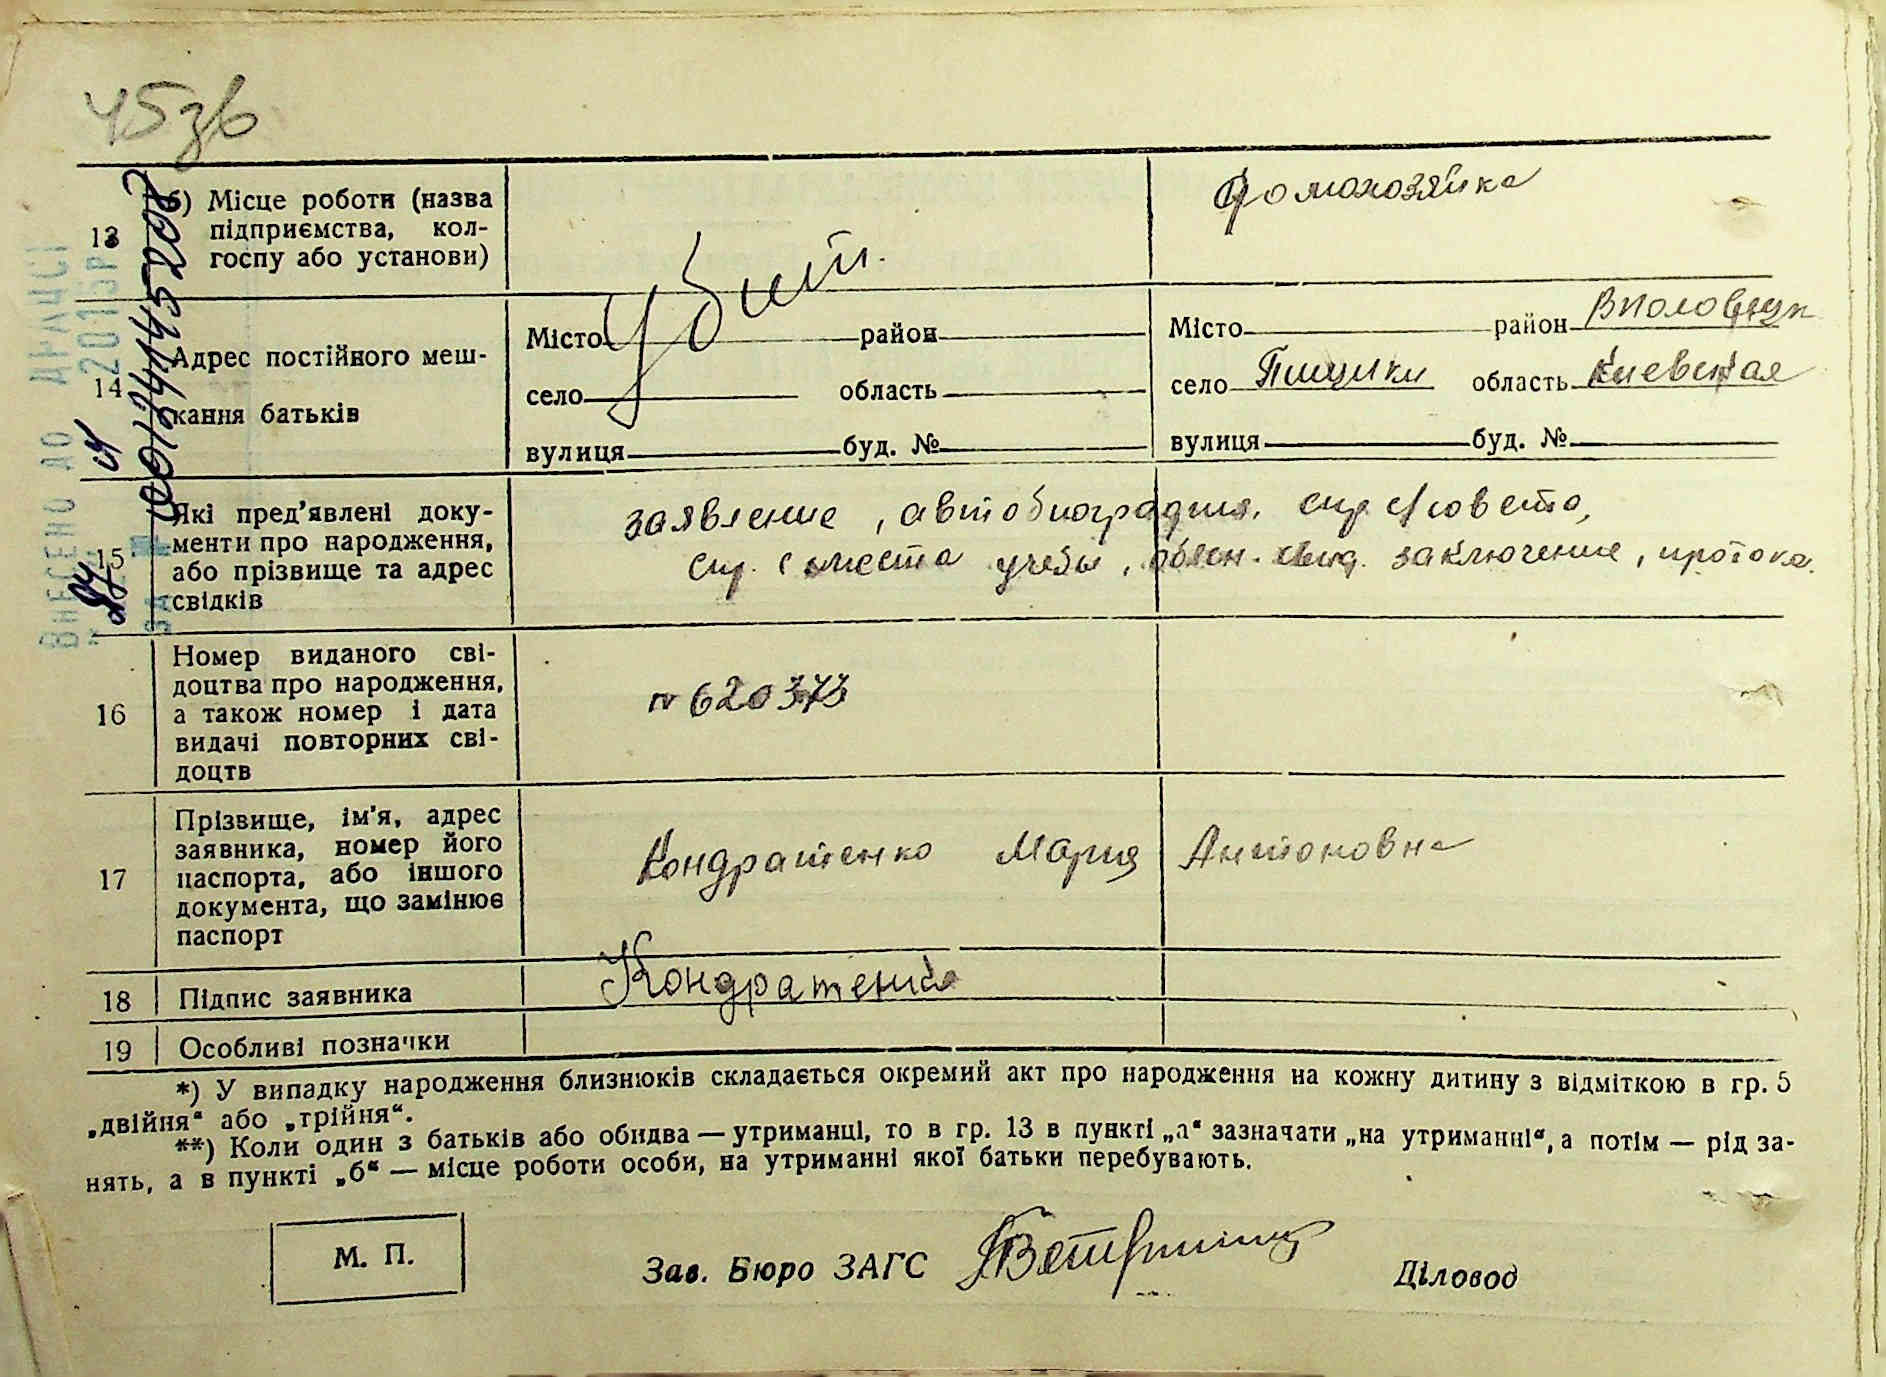 45зв
13 б) Місце роботи (назва підприємства, кол-
госпу або установи)
Домохозяйка
Убит.
14 Адрес постійного меш-
кання батьків
Місто район Місто район Вполовецк
село область село Пищики область Киевская
вулиця буд. № вулиця буд. №
15 Які пред'явлені доку-
менти про народження,
або прізвище та адрес
свідків
заявление, автобиография, спр с/совета,
спр. с места учебы, заключение, протокол
16 Номер виданого сві-
доцтва про народження,
а також номер і дата
видачі повторних сві-
доцтв
№ 620373
17 Прізвище, ім'я, адрес
заявника, номер його
паспорта, або іншого
документа, що замінює
паспорт
Кондратенко Мария Антоновна
18 Підпис заявника Кондратенко
19 Особливі позначки
*) У випадку народження близнюків складається окремий акт про народження на кожну дитину з відміткою в гр. 5
„двійня“ або „трійня“.
**) Коли один з батьків або обидва — утриманці, то в гр. 13 в пункті „а“ зазначати „на утриманні“, а потім — рід за-
нять, а в пункті „б“ — місце роботи особи, на утриманні якої батьки перебувають.
М. П. Зав. Бюро ЗАГС Діловод
ВНЕСЕНО ДО ДРАЦСГ
2015р.
00134114452002